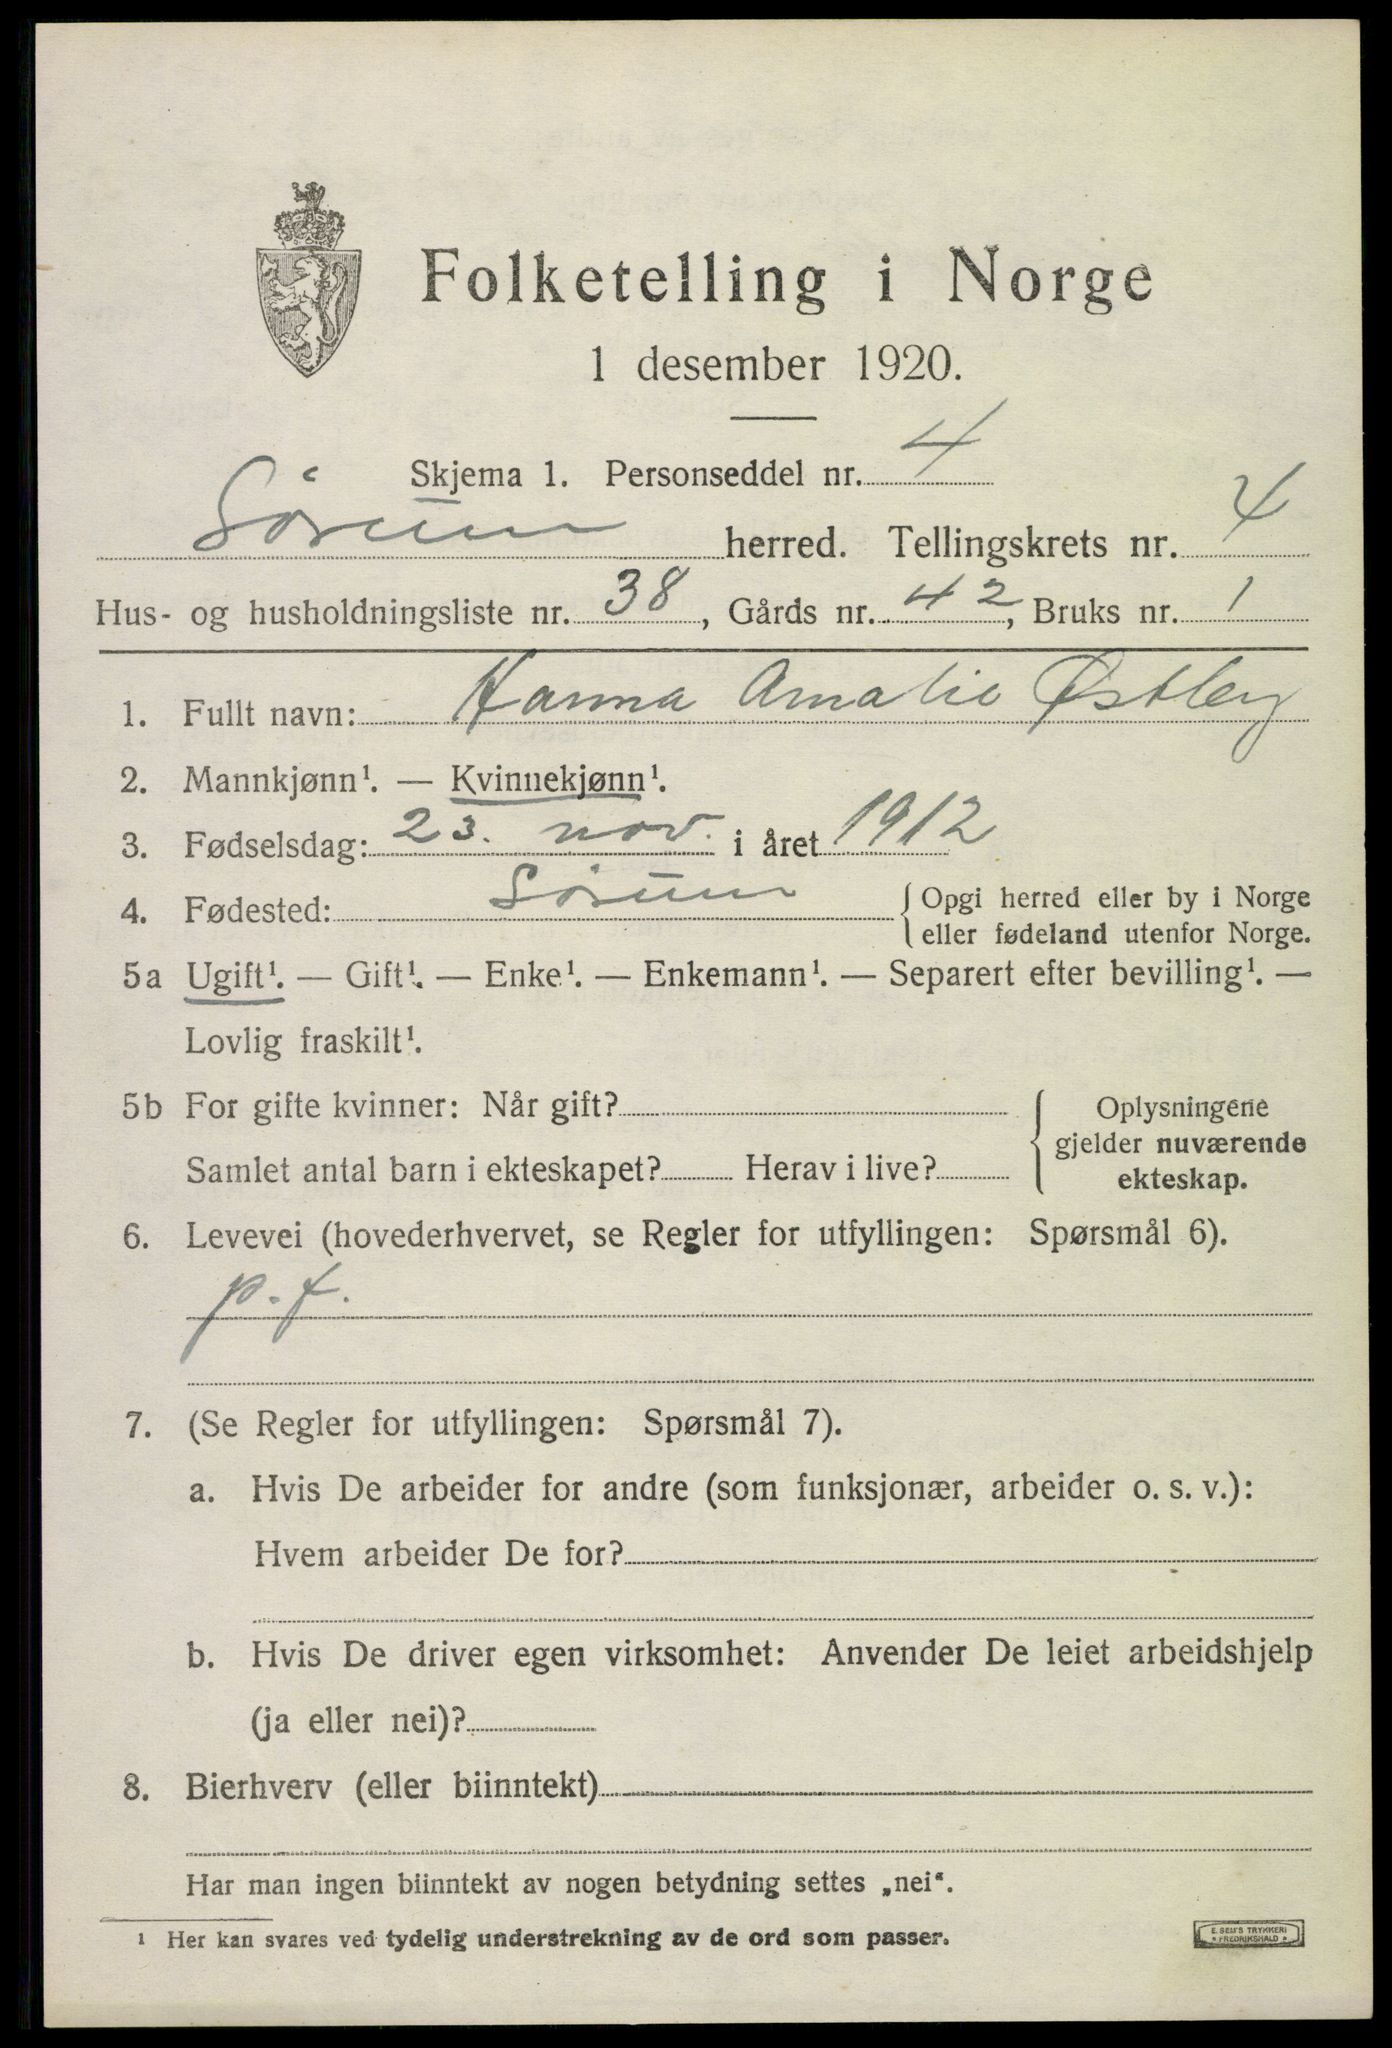 Folketelling i Norge
1 desember 1920.
Skjema 1. Personseddel nr. 4
Sørum herred. Tellingskrets nr. 4
Hus- og husholdningsliste nr. 38, Gårds nr. 42, Bruks nr. 1
1. Fullt navn: Hanna Amalie Østbey
2. Mannkjønn¹. — Kvinnekjønn¹.
3. Fødselsdag: 23. nov. i året 1912
4. Fødested: Sørum { Opgi herred eller by i Norge
eller fødeland utenfor Norge.
5a Ugift¹. — Gift¹. — Enke¹. — Enkemann¹. — Separert efter bevilling¹. —
Lovlig fraskilt¹.
5b For gifte kvinner: Når gift?
Samlet antal barn i ekteskapet? Herav i live?
{ Oplysningene
gjelder nuværende
ekteskap.
6. Levevei (hovederhvervet, se Regler for utfyllingen: Spørsmål 6).
p. f.
7. (Se Regler for utfyllingen: Spørsmål 7).
a. Hvis De arbeider for andre (som funksjonær, arbeider o. s. v.):
Hvem arbeider De for?
b. Hvis De driver egen virksomhet: Anvender De leiet arbeidshjelp
(ja eller nei)?
8. Bierhverv (eller biinntekt)
Har man ingen biinntekt av nogen betydning settes „nei“.
¹ Her kan svares ved tydelig understrekning av de ord som passer.
E. SEM'S TRYKKERI
* FREDRIKSHALD *